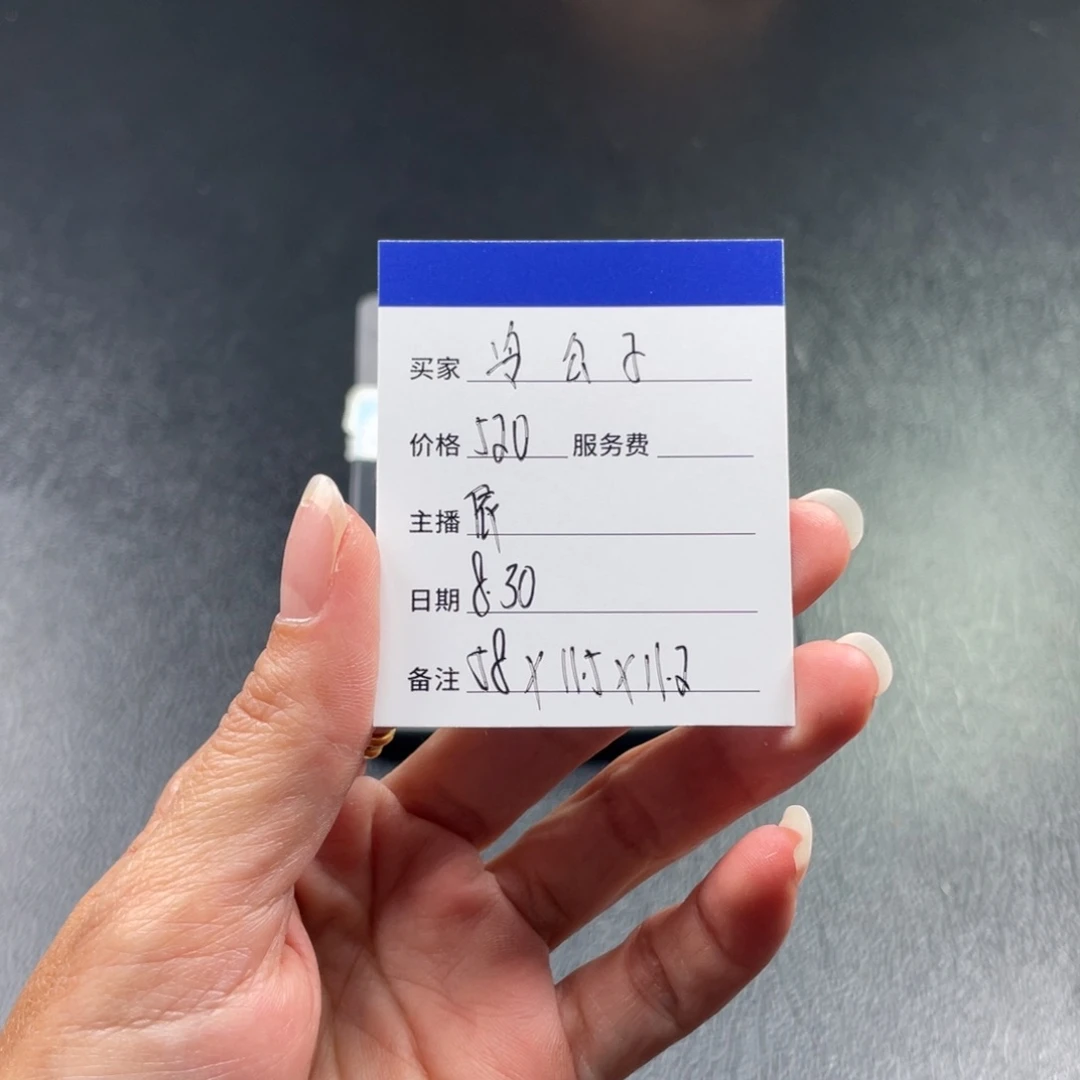 买家 公子
价格 520 服务费
主播
日期 8.30
备注 58 x 11.5 x 11.2